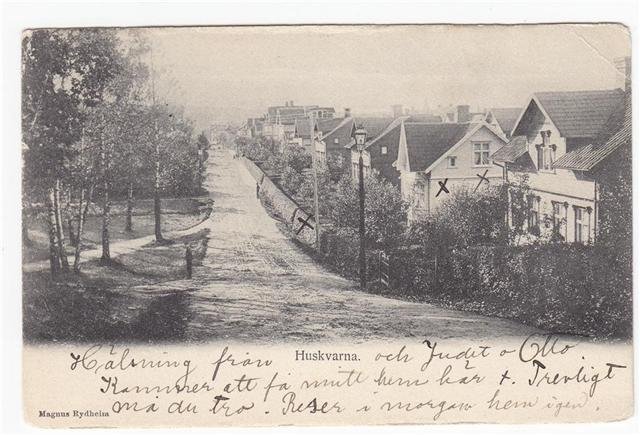 Hälsning från Huskvarna. och Judit o Otto
Kommer att få mitt hem här x. Trevligt
må du tro. Reser i morgon hem igen.
Magnus Rydheim